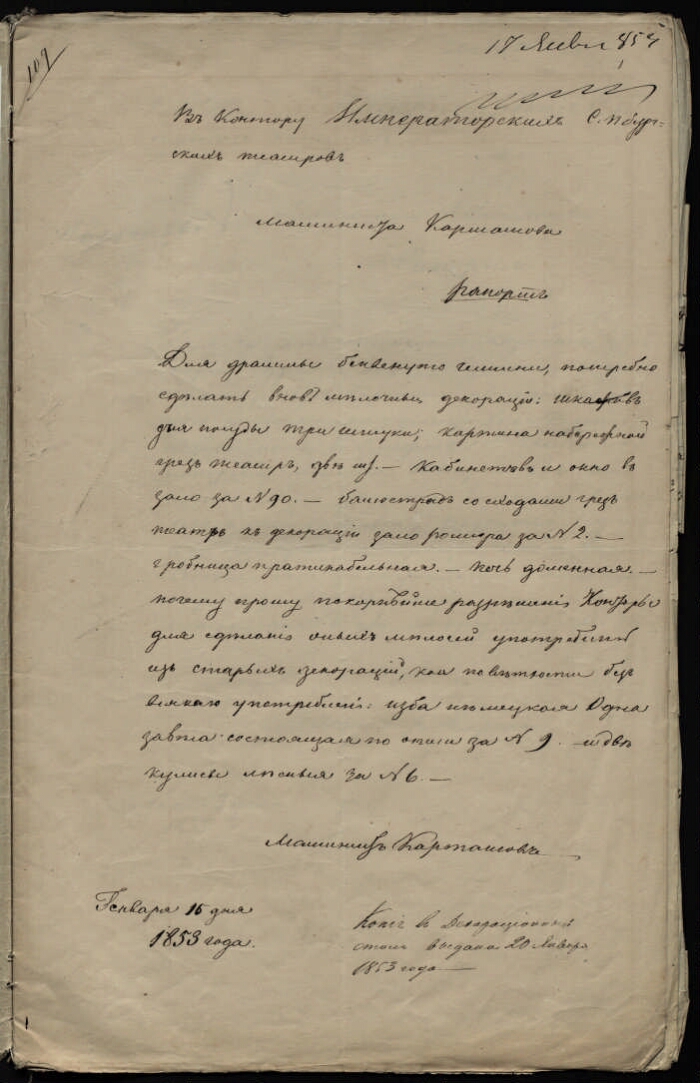 109
17 Янв 1853
Въ Контору Императорскихъ С. Пбург-
скихъ театровъ
Машиниста Карташова
рапортъ
Для драммы бенвенуто челини, потребно
сделать вновь мелочныхъ декорацiй: шкафовъ
для посуды три штуки; картина набережной
чрезъ театръ, две ш. — Кабинетовъ и окно въ
зало за № 90. — балюстрадъ со сходами чрезъ
театръ къ декорацiи зало за № 2. —
гробница пратикабельная. — печь доменная. —
почему прошу покорнейше разрешенiя Конторы
для сделанiя оныхъ мелочей употребить
изъ старыхъ декорацiй, кои по ветхости безъ
всякаго употребленiя: изба немецкая одна
завеса состоящая по описи за № 9. и две
кулисы лесныя за № 6. —
Машинистъ Карташовъ
Генваря 15 дня
1853 года.
Копiя въ Декорацiонный
столъ выдана 20 Января
1853 года —